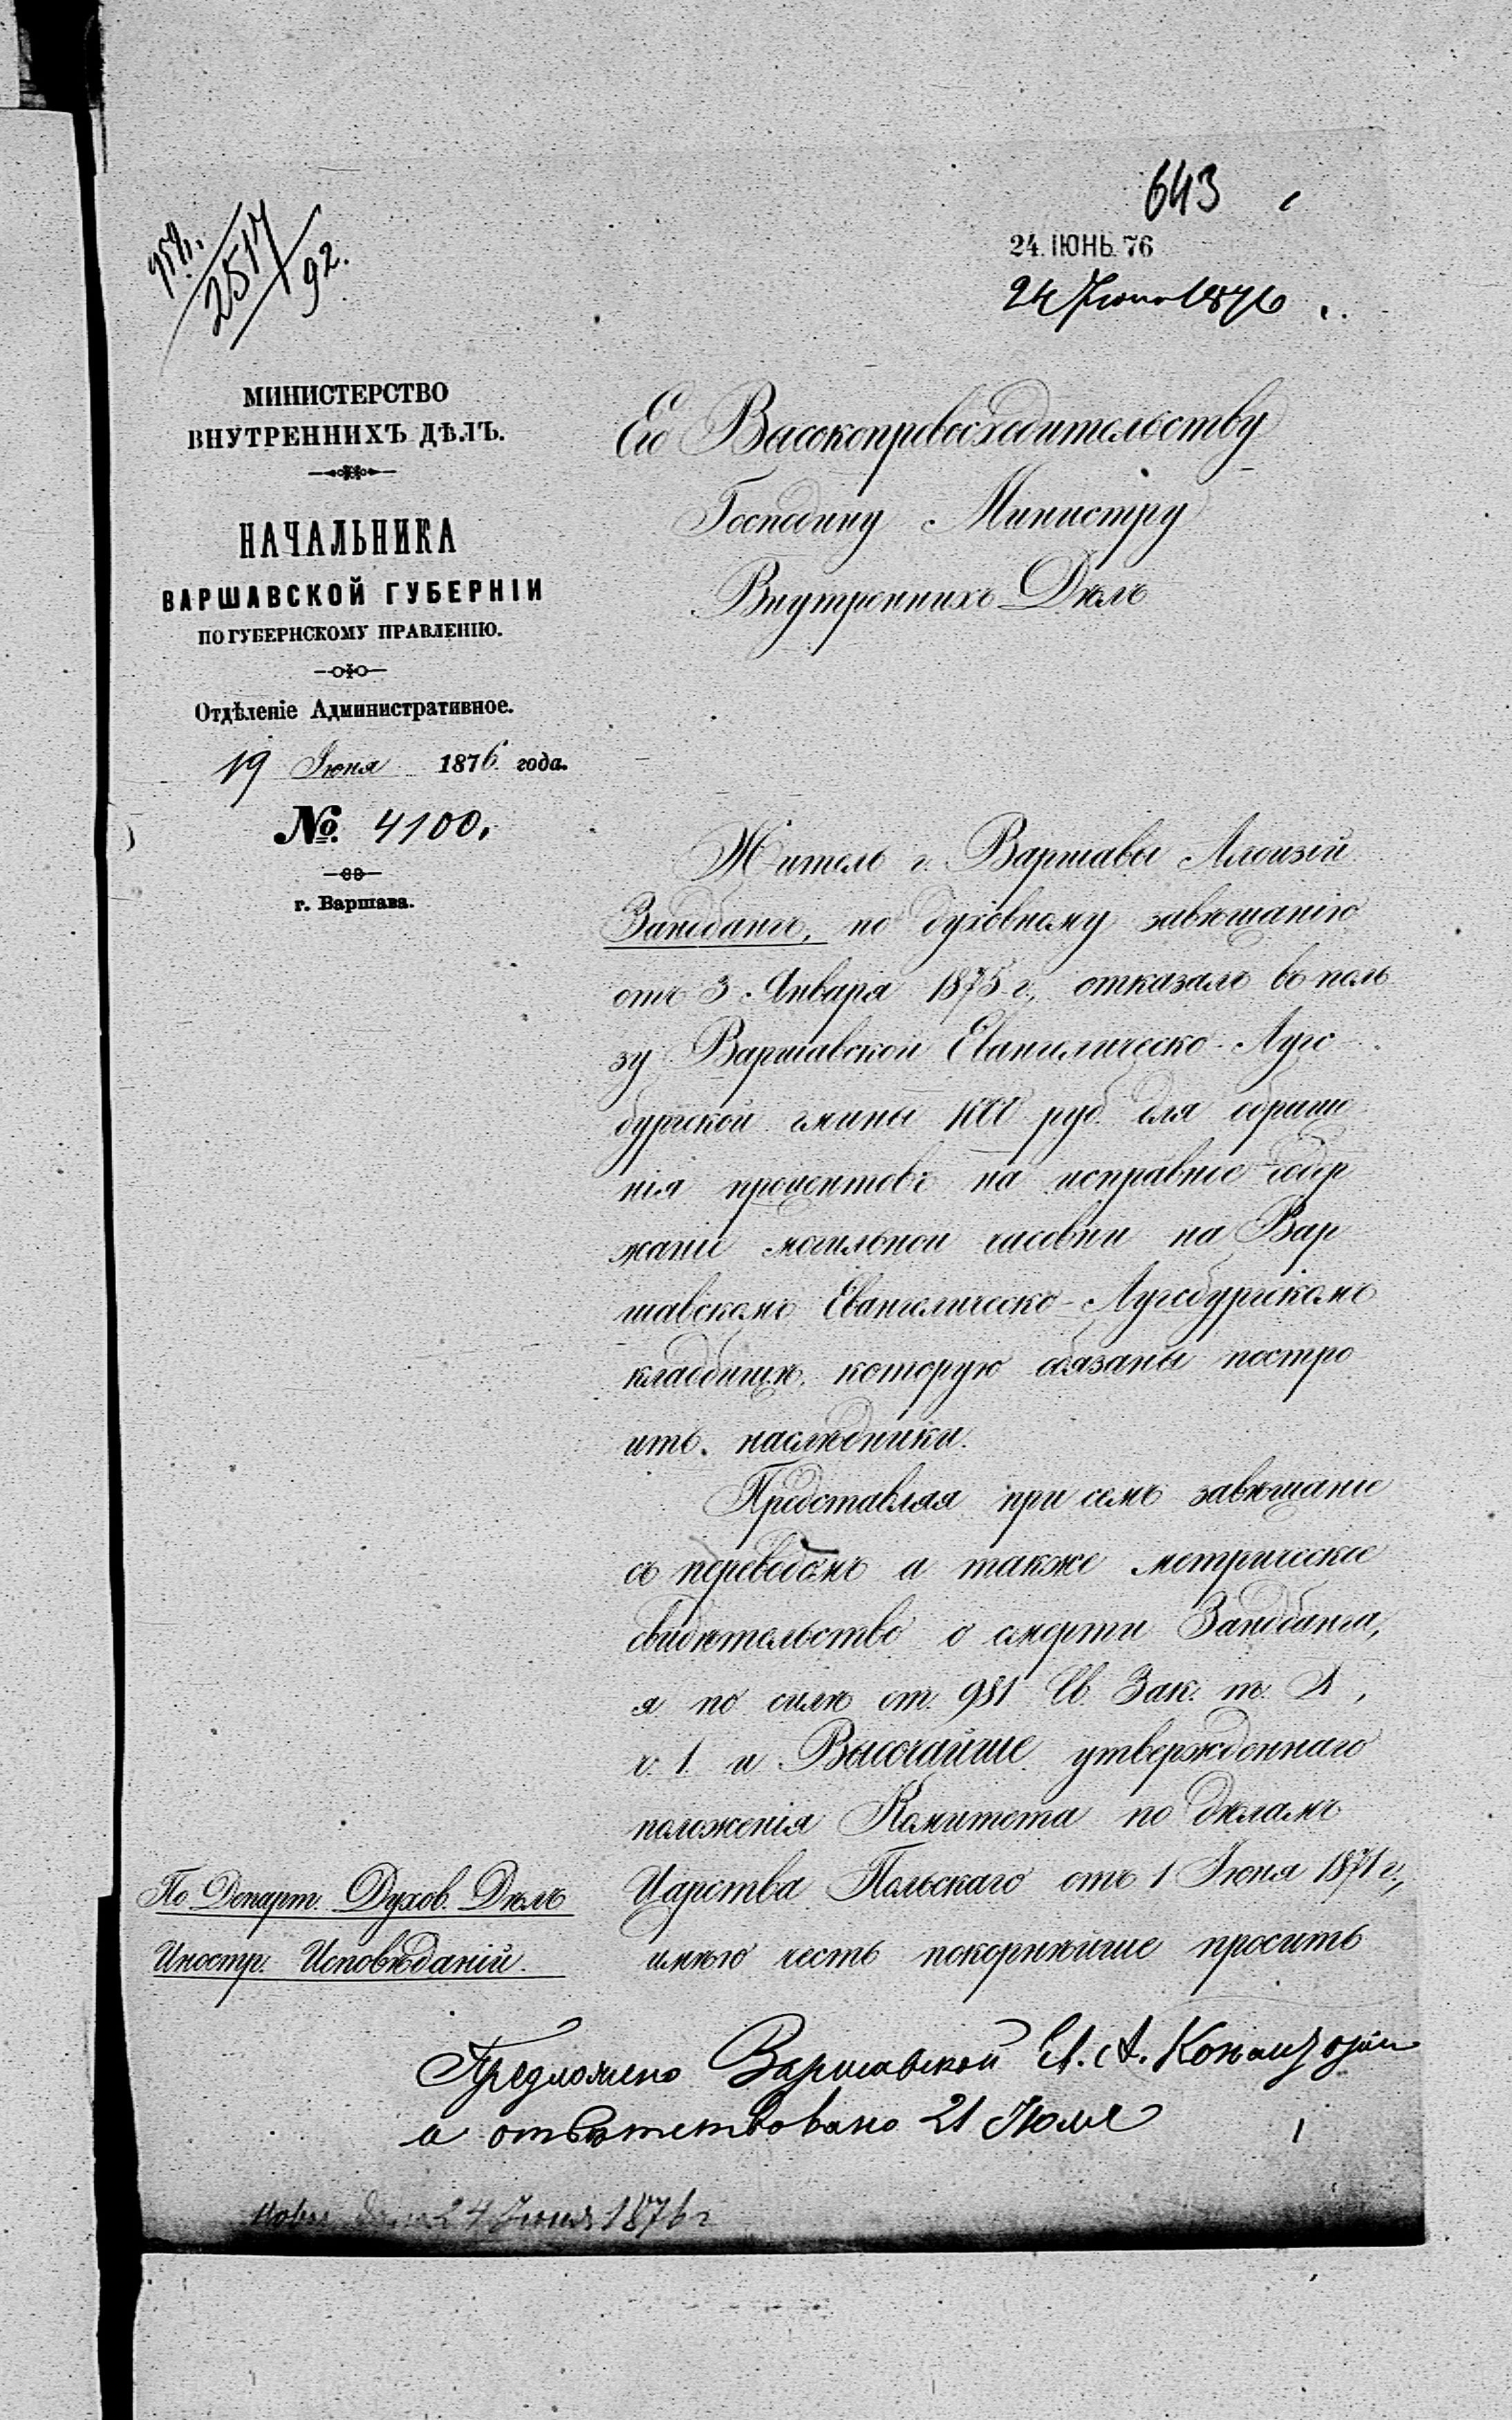 643
24. ІЮНЬ. 76
24 Іюня 1876
2517
92.
МИНИСТЕРСТВО
ВНУТРЕННИХЪ ДѢЛЪ.
НАЧАЛЬНИКА
ВАРШАВСКОЙ ГУБЕРНІИ
ПО ГУБЕРНСКОМУ ПРАВЛЕНІЮ.
Отдѣленіе Административное.
19 Іюня 1876 года.
№ 4100.
г. Варшава.
Его Высокопревосходительству
Господину Министру
Внутреннихъ Дѣлъ
Житель г. Варшавы Алоизій
Зандбангъ, по духовному завѣщанію
отъ 3 Января 1875 г., отказалъ въ поль
зу Варшавской Евангелическо-Аугс
бургской гмины 1000 руб. для обраще
нія процентовъ на исправное содер
жаніе могильной часовни на Вар
шавскомъ Евангелическо-Аугсбургскомъ
кладбищѣ, которую обязаны постро
ить. наслѣдники.
Представляя при семъ завѣщаніе
съ переводомъ а также метрическое
свидѣтельство о смерти Зандбанга,
я по силѣ ст. 981 Св. Зак. т. X,
ч. 1. и Высочайше утвержденнаго
положенія Комитета по дѣламъ
Царства Польскаго отъ 1 Іюня 1871 г.,
имѣю честь покорнѣйше просить
По Департ. Духов. Дѣлъ
Иностр. Исповѣданій.
Предложено Варшавской Ев. А. Консисторіи
и отвѣтствовано 21 Іюля
24 Іюня 1876 г